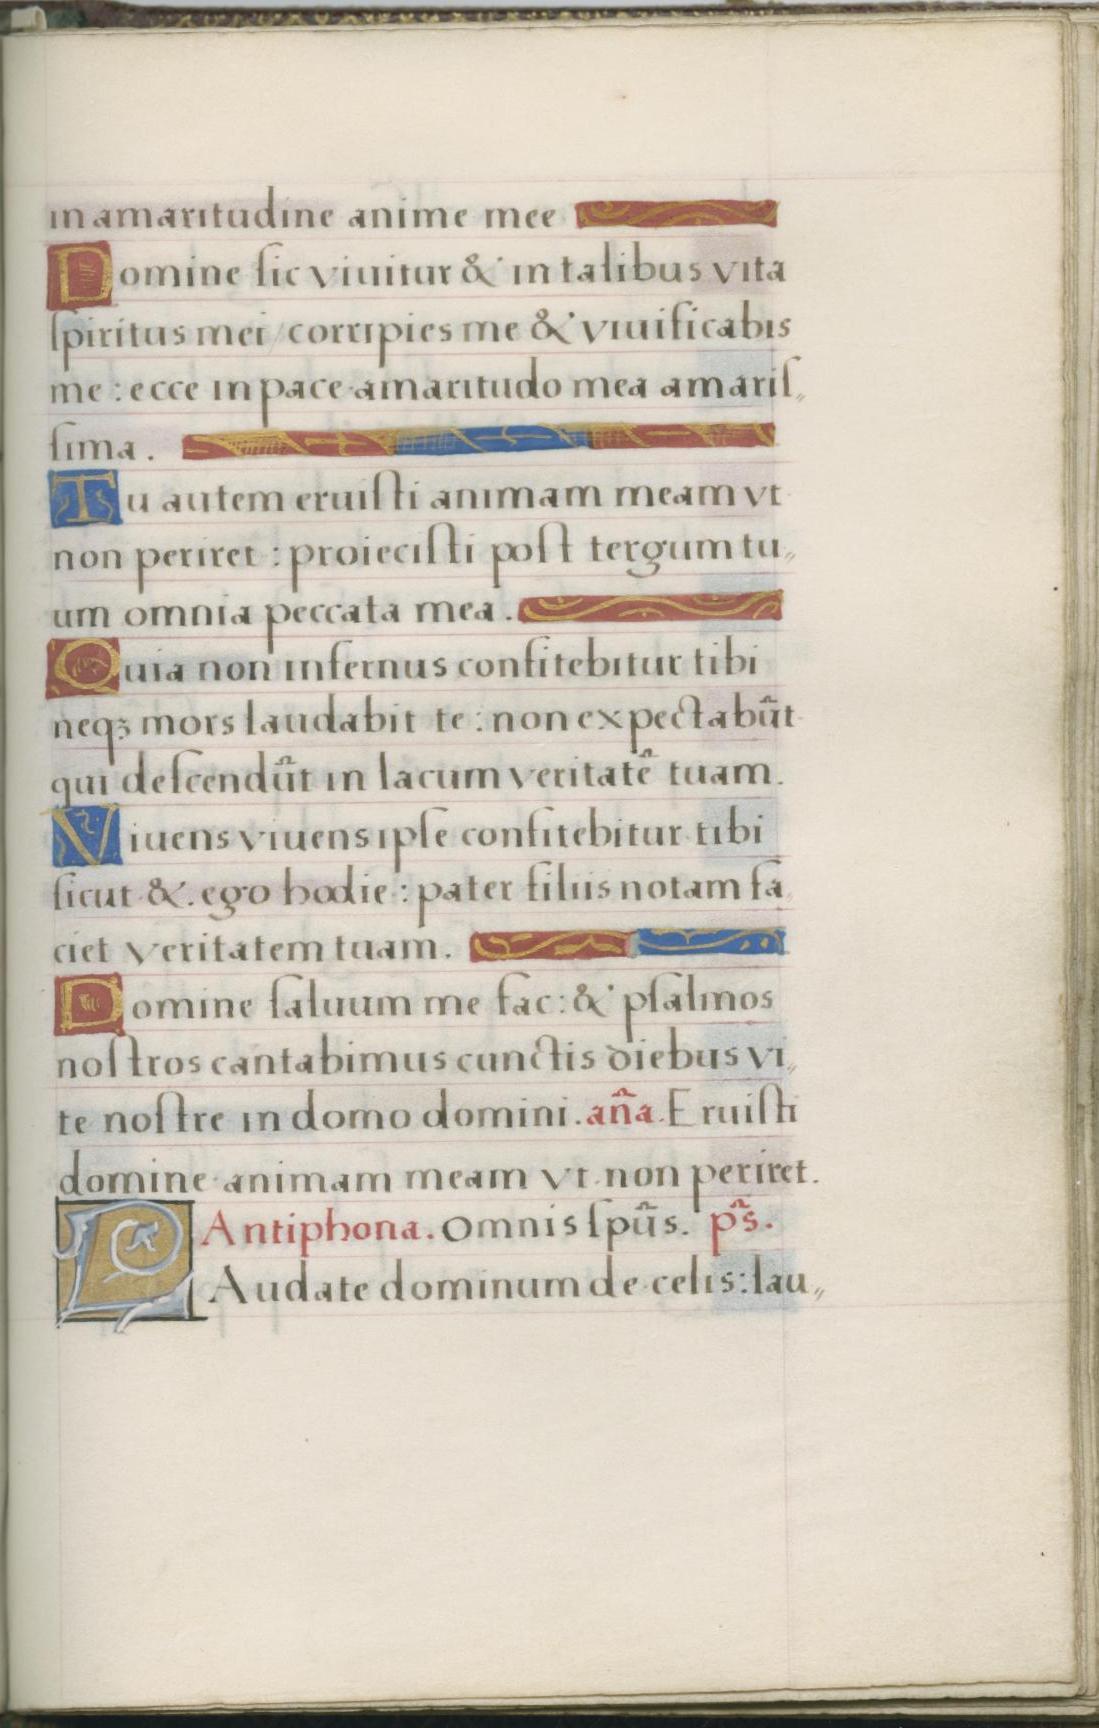 in amaritudine anime mee
Domine ſic viuitur & in talibus vita
ſpiritus mei / corripies me & viuificabis
me : ecce in pace amaritudo mea amariſ„
ſima .
Tu autem eruiſti animam meam vt
non periret : proieciſti poſt tergum tu„
um omnia peccata mea .
Quia non infernus confitebitur tibi
neqꝫ mors laudabit te : non expectabūt
qui deſcendūt in lacum veritatē tuam .
Viuens viuens ipſe confitebitur tibi
ſicut & . ego hodie : pater filiis notam fa
ciet veritatem tuam .
Domine ſaluum me fac : & pſalmos
noſtros cantabimus cunctis diebus vi„
te noſtre in domo domini . an̄a . Eruiſti
domine animam meam vt non periret .
Antiphona . Omnis ſpūs . p̄s .
LAudate dominum de celis : lau„